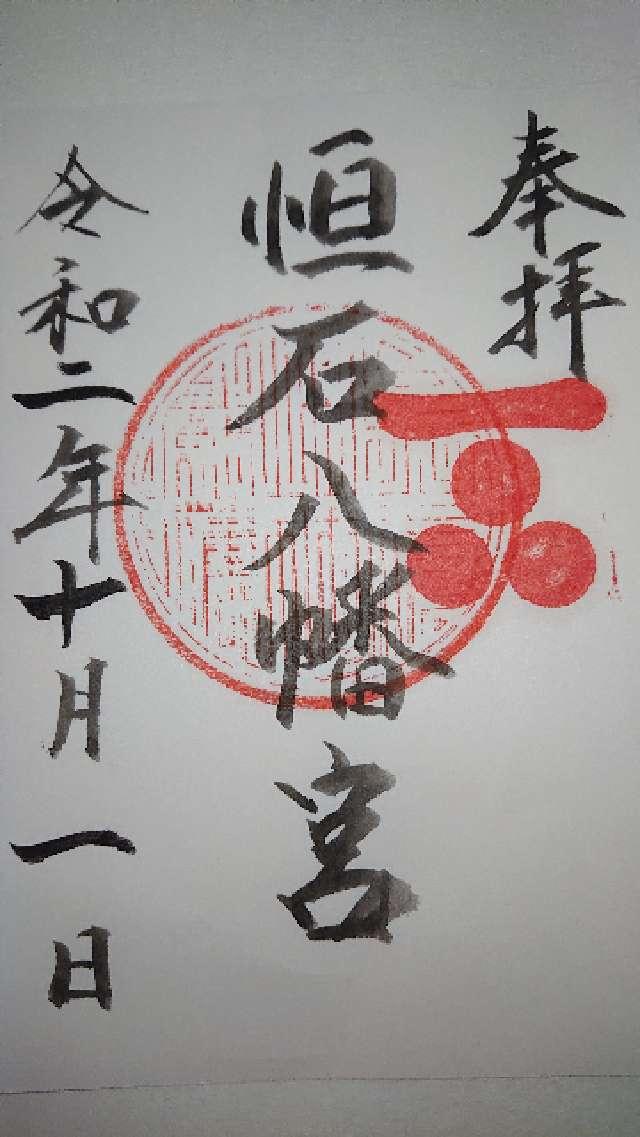 奉拝
恒石八幡宮
令和二年十月一日